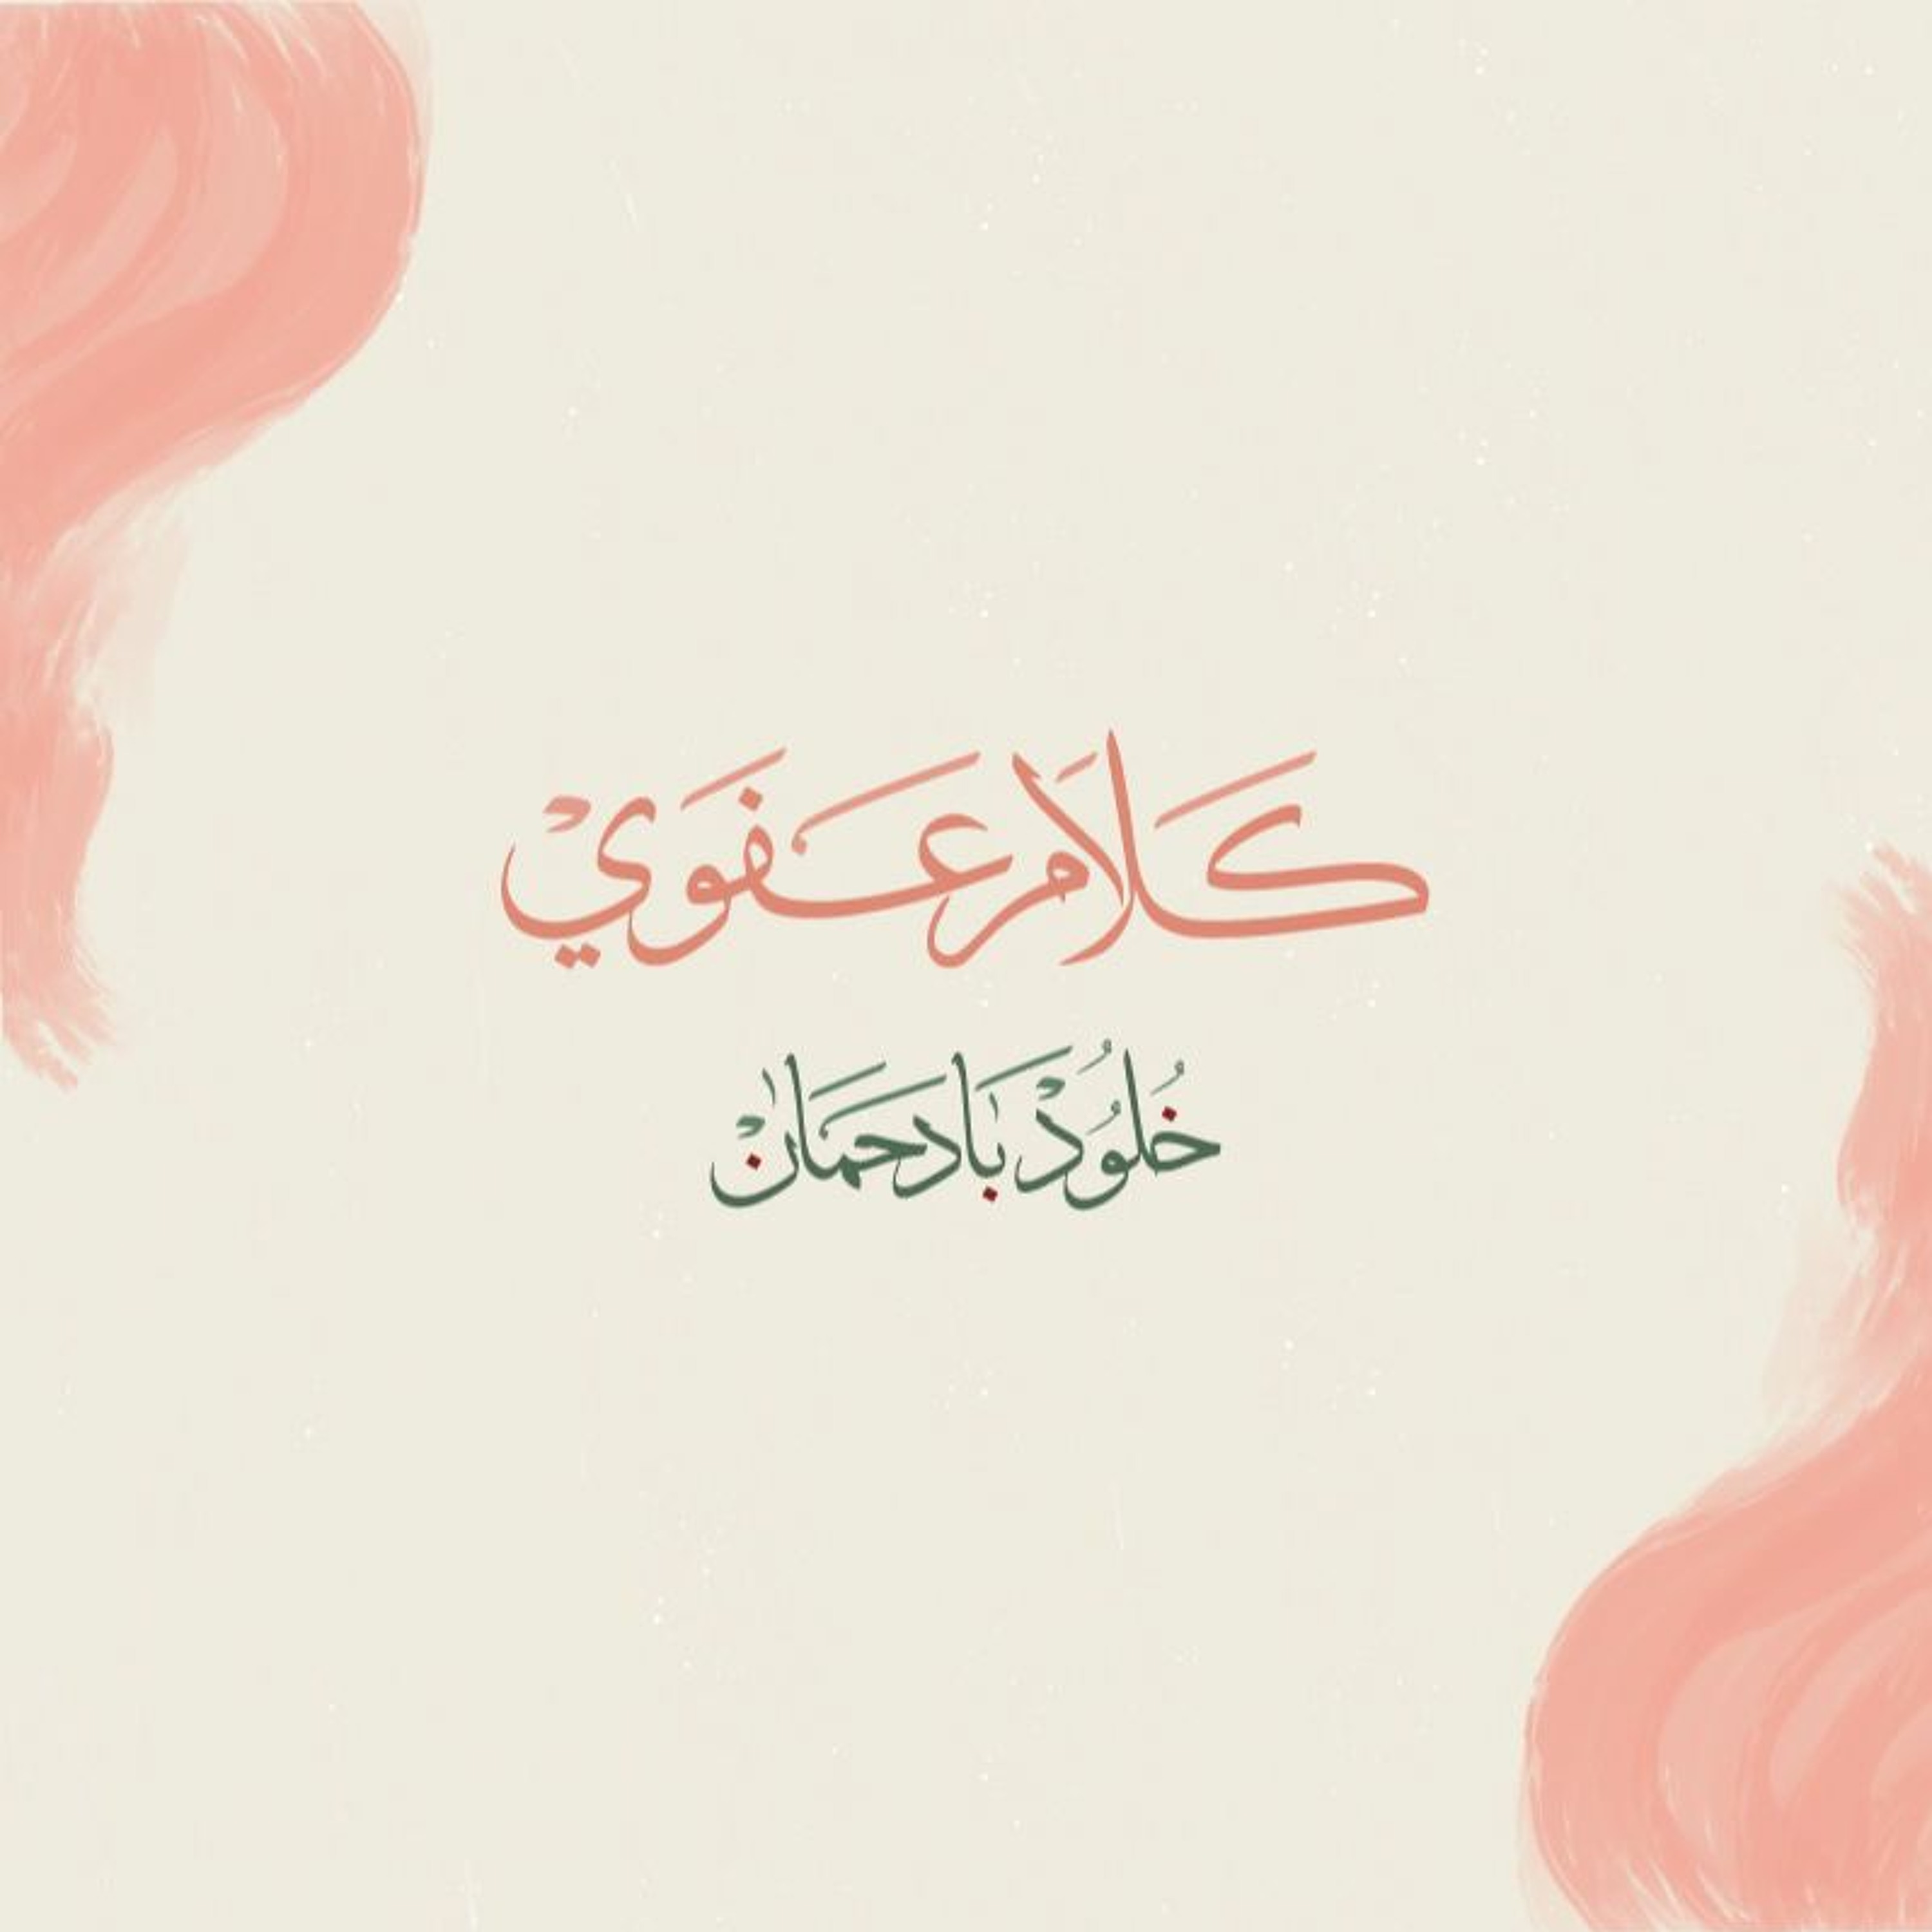 كَلَامر عَفَوَيْ
خُلُوُدْ بَادَحَمَانْ